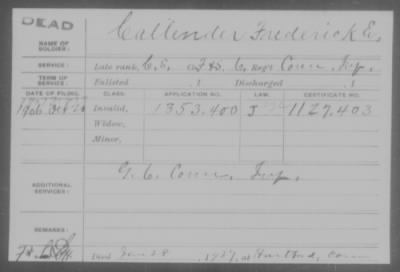 DEAD
NAME OF SOLDIER: Callender Frederick E.
SERVICE: Late rank, Co. Reg't Conn. Inf.
TERM OF SERVICE: Enlisted , 1 Discharged , 1
DATE OF FILING. CLASS. APPLICATION NO. LAW. CERTIFICATE NO.
1906 Invalid, 1353.400 J 1127.403
Widow,
Minor,
ADDITIONAL SERVICES: G. 6. Conn. Inf.
REMARKS:
Died Jan 28, 1927, at Hartford, Conn